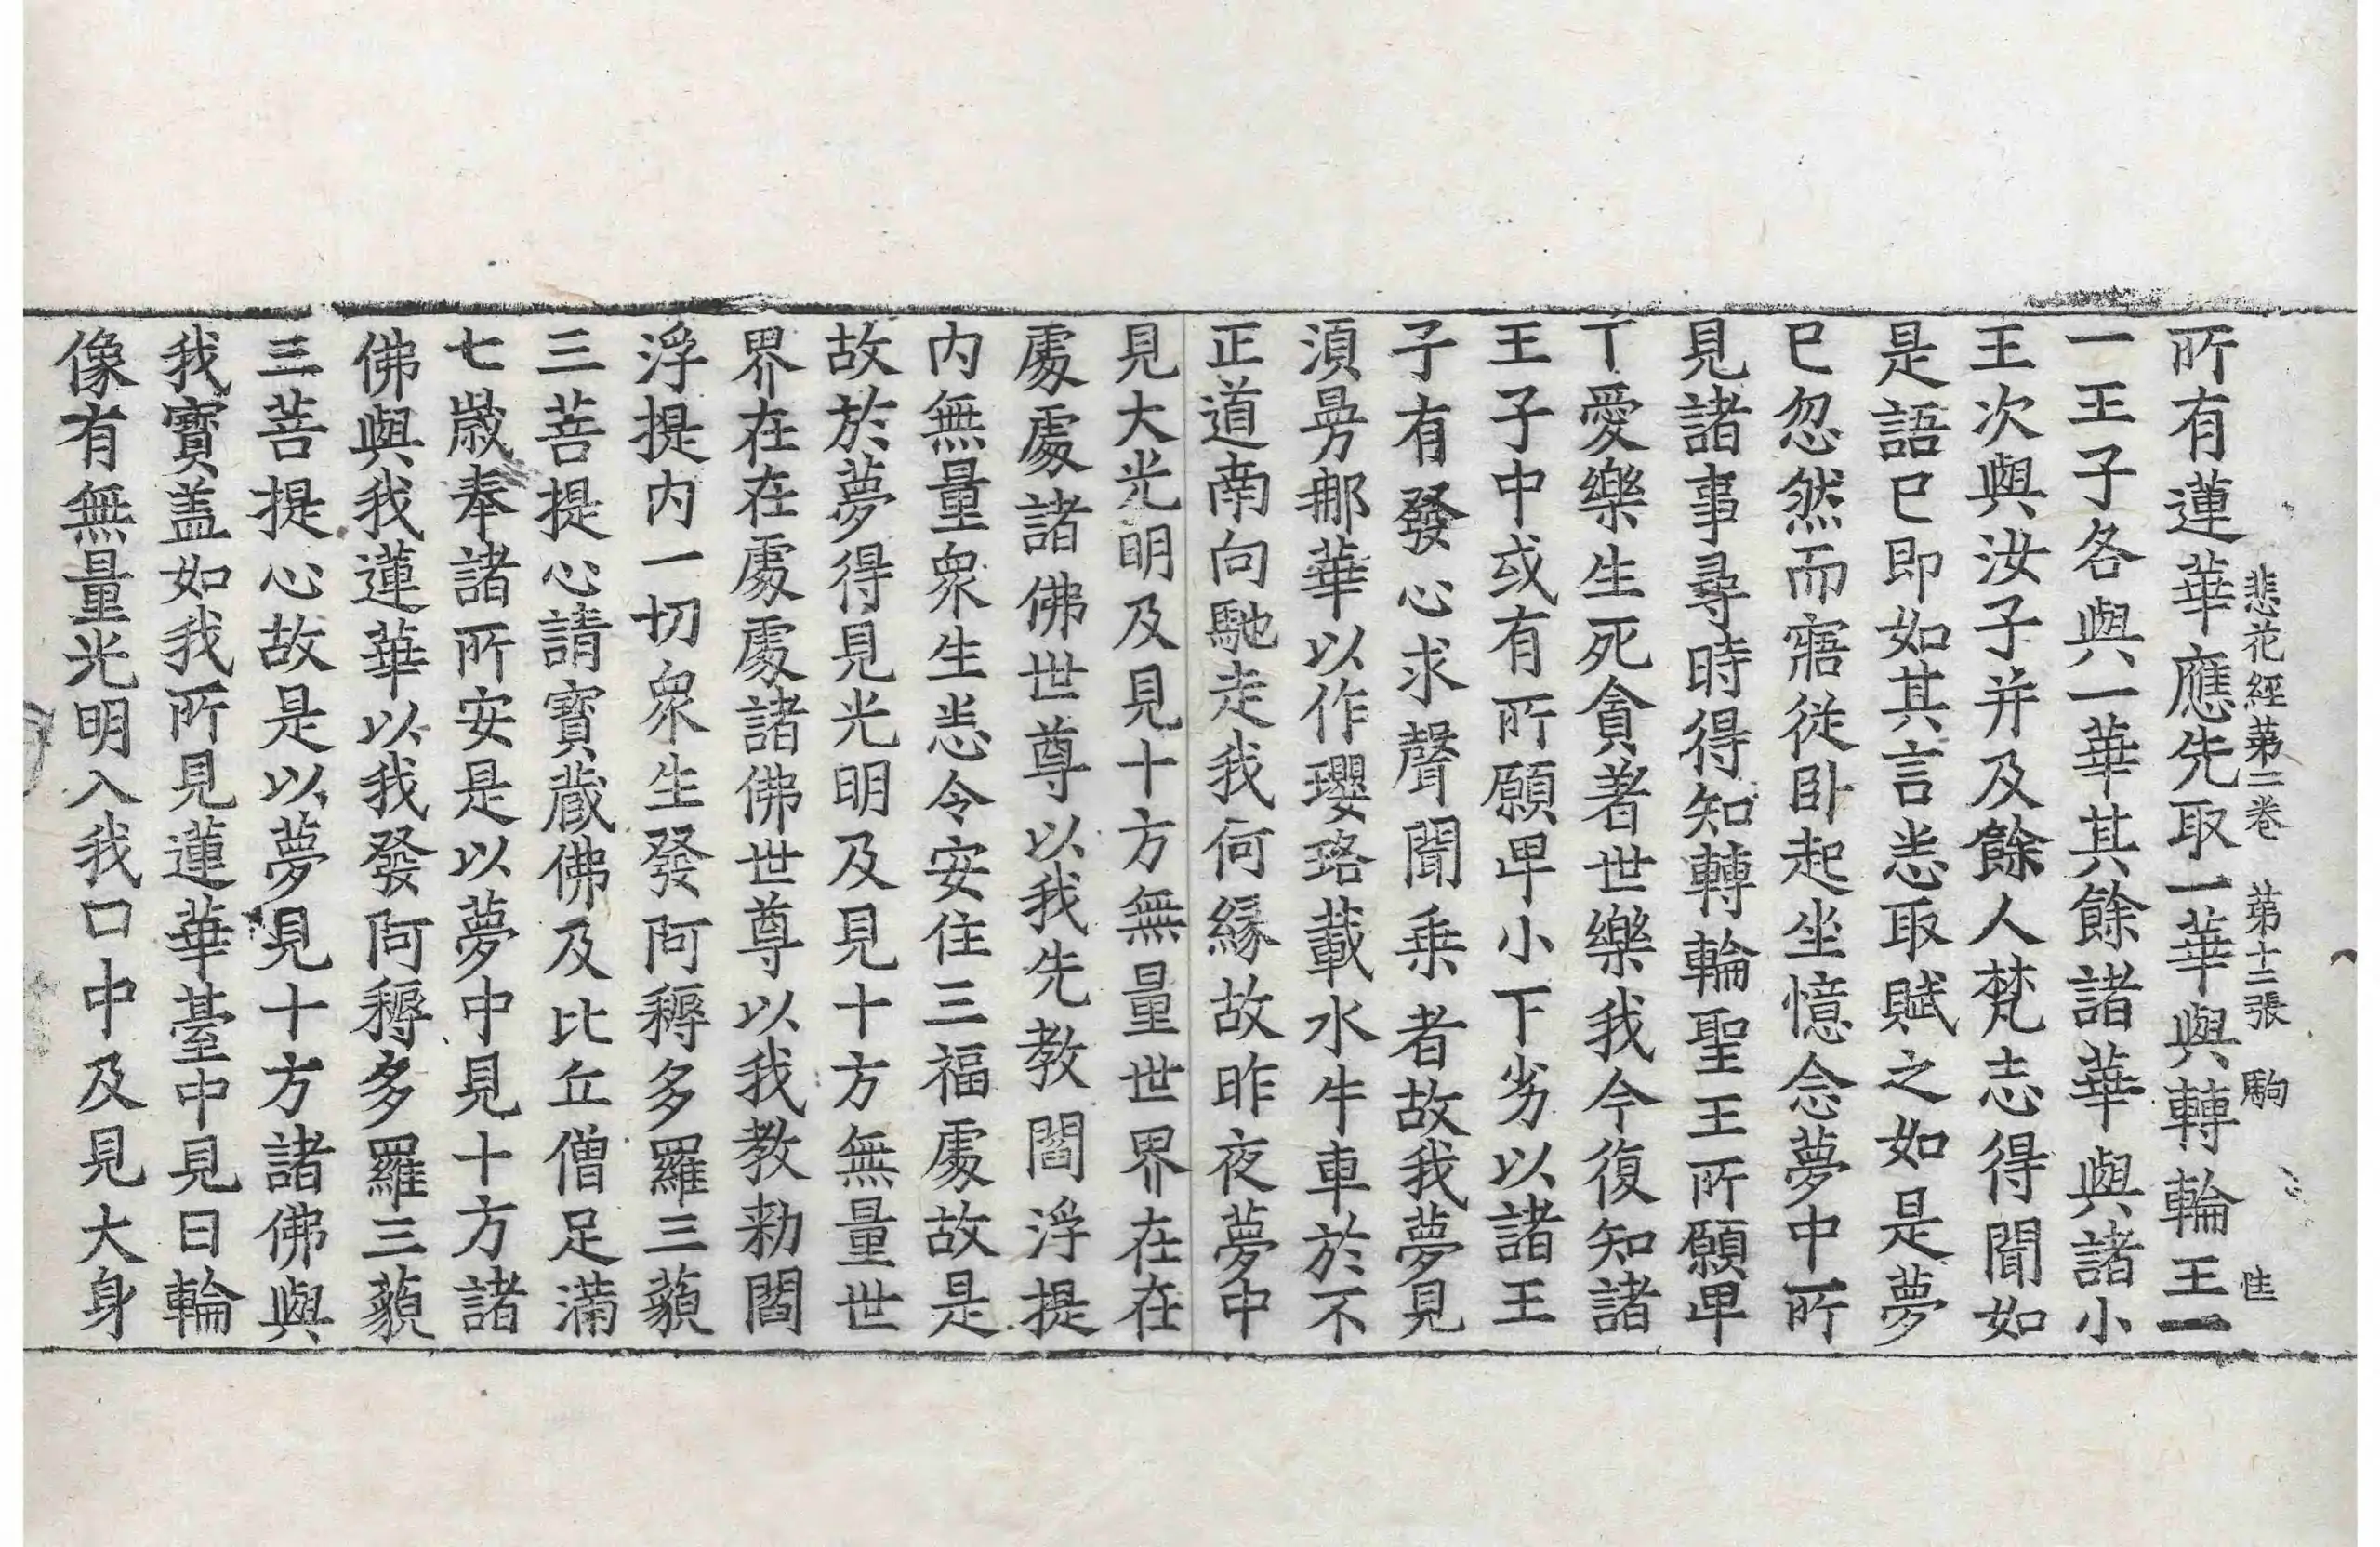 悲花經第二卷 第十二張 駒 隹
所有蓮華應先取一華與轉輪王一
一王子各與一華其餘諸華與諸小
王次與汝子并及餘人梵志得聞如
是語已即如其言悉取賦之如是夢
已忽然而寤從卧起坐憶念夢中所
見諸事尋時得知轉輪聖王所願卑
下愛樂生死貪著世樂我今復知諸
王子中或有所願卑小下劣以諸王
子有發心求聲聞乗者故我夢見
湏曼那華以作瓔珞載水牛車於不
正道南向馳走我何緣故昨夜夢中
見大光明及見十方無量世界在在
處處諸佛世尊以我先教閻浮提
内無量衆生悉令安住三福處故是
故於夢得見光明及見十方無量世
界在在處處諸佛世尊以我教勑閻
浮提内一切衆生發阿耨多羅三藐
三菩提心請寶藏佛及比丘僧足滿
七歲奉諸所安是以夢中見十方諸
佛與我蓮華以我發阿耨多羅三藐
三菩提心故是以夢見十方諸佛與
我寶盖如我所見蓮華臺中見日輪
像有無量光明入我口中及見大身